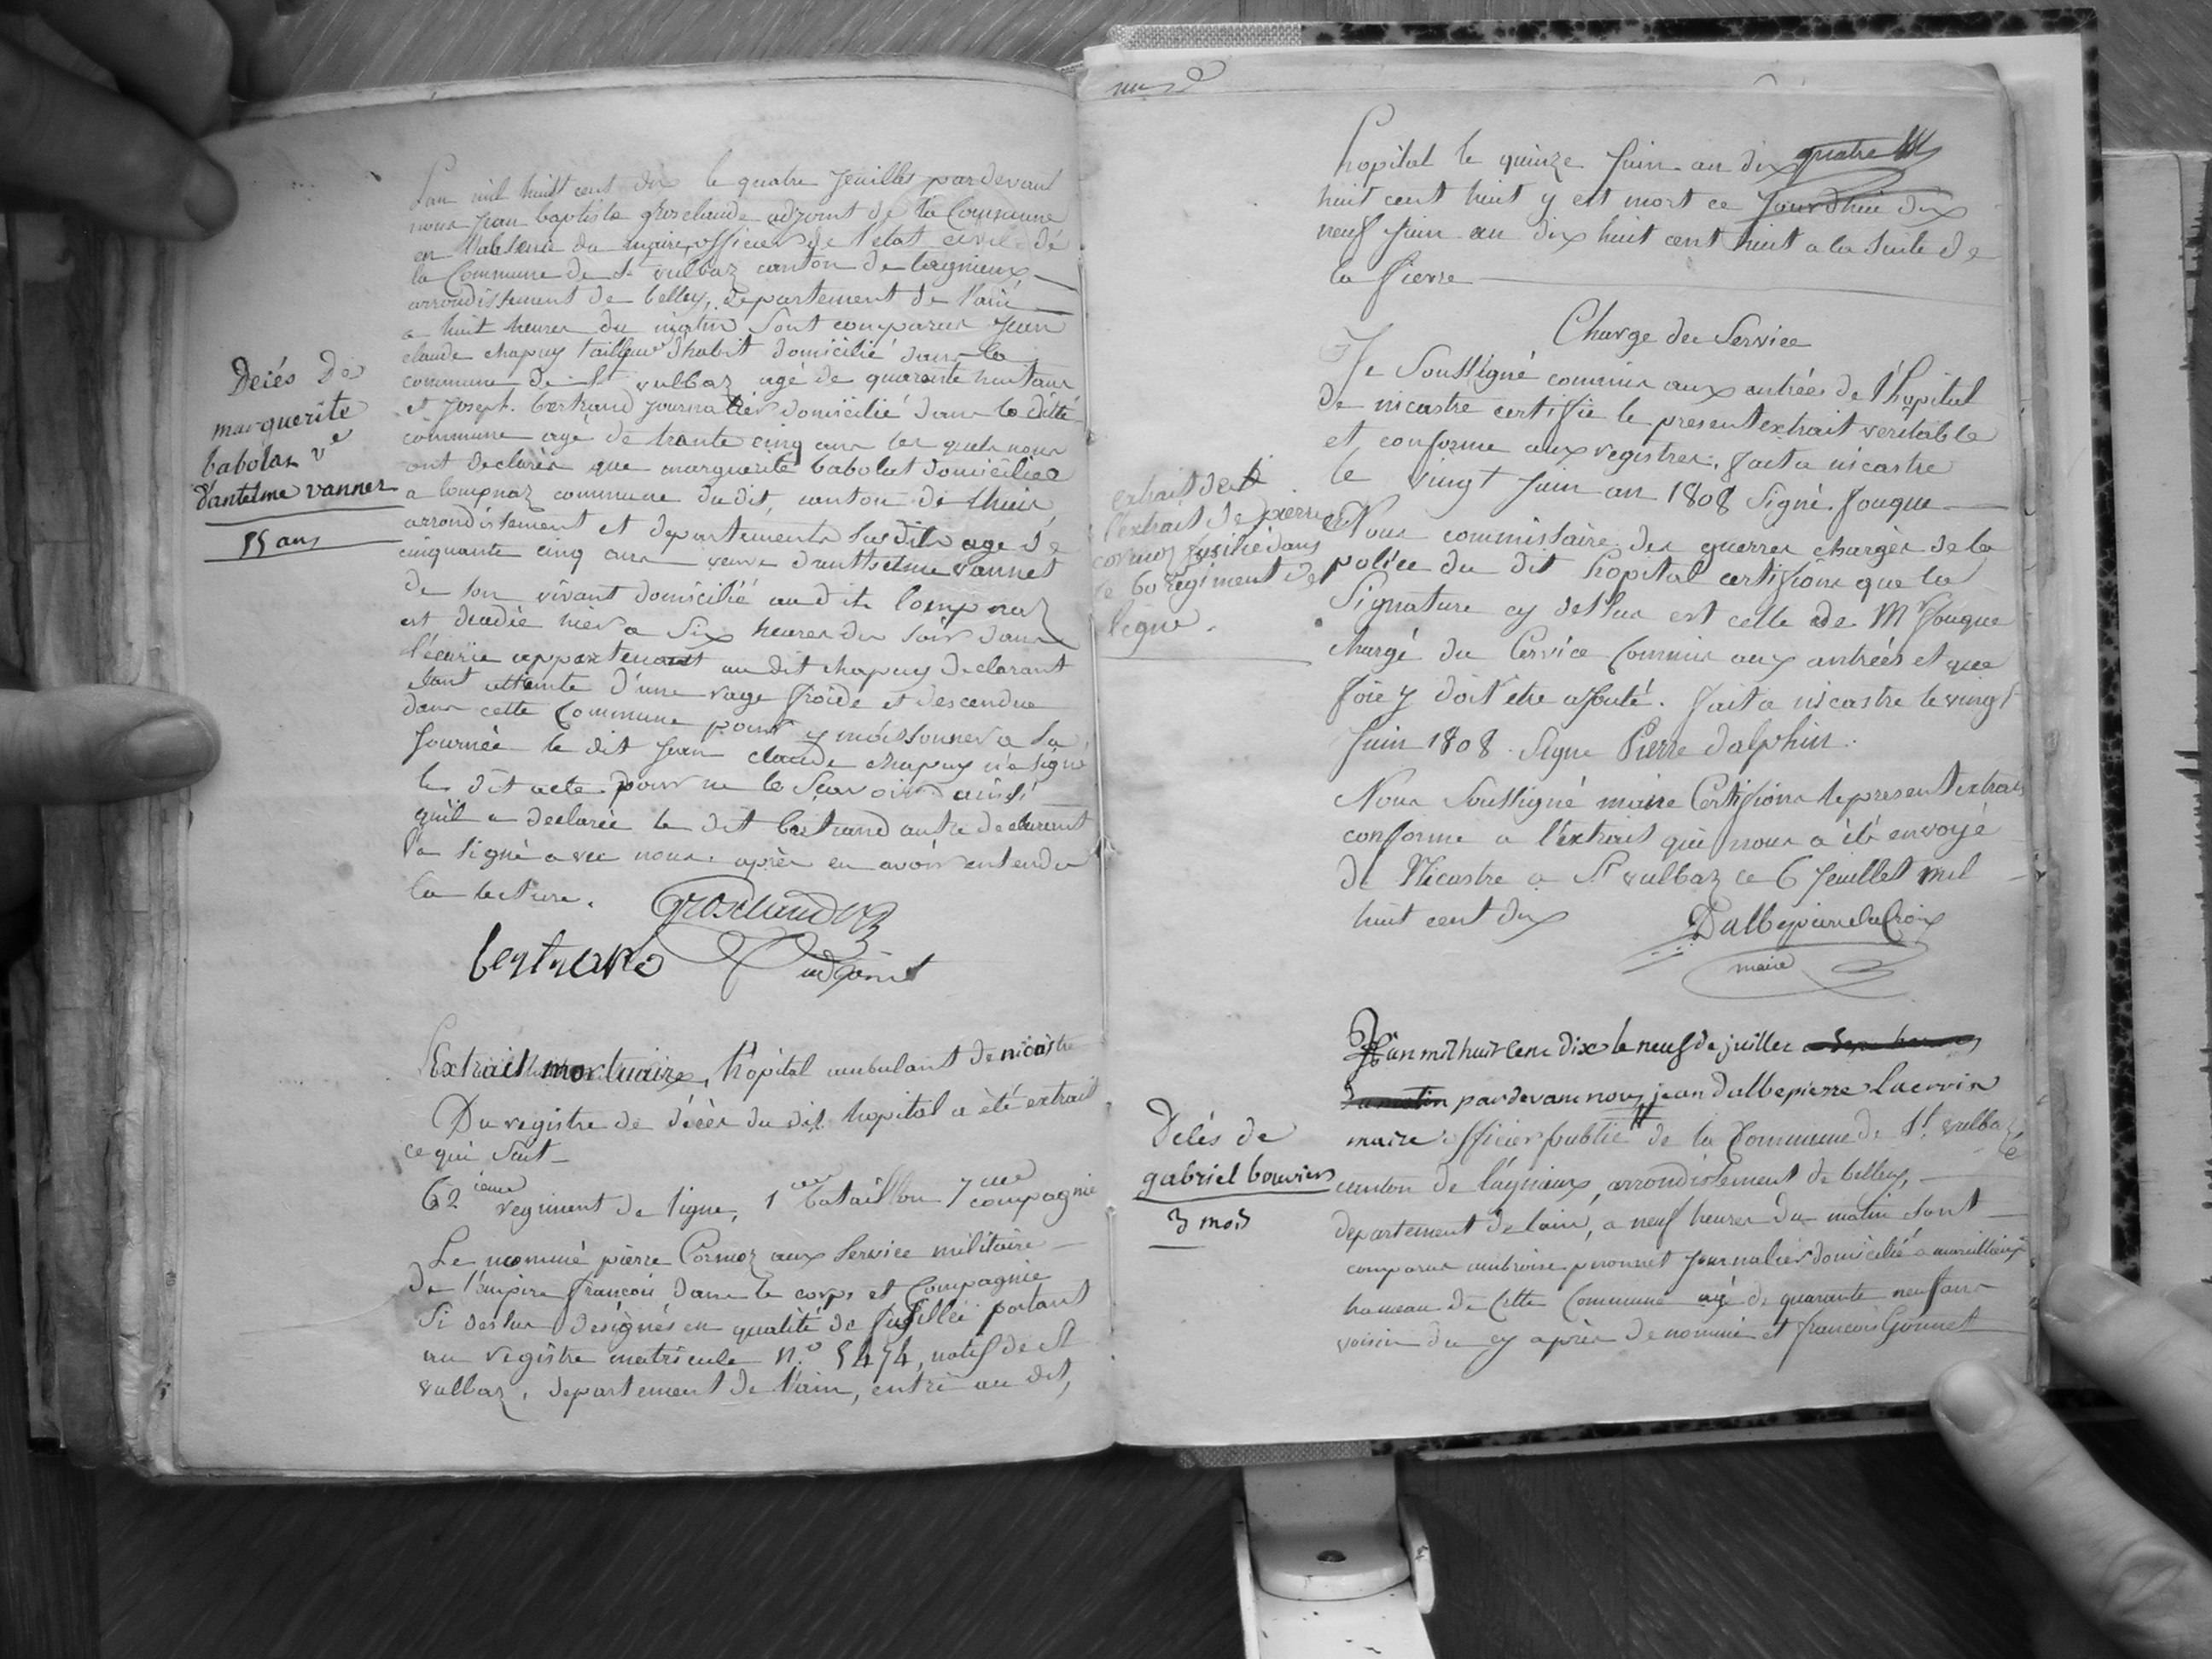 Décés De
marguerite
babolas ve
d'antelme vannet
55 ans
L'an mil huit cent dix le quatre Jeuillet pardevant
nous Jean baptiste grosclaude adjoint de la Commune
en l'absence du maire, officier de l'etat civile de
la Commune de St vulbaz canton de lagnieux
arrondissement de belley, departement de l'ain
a huit heures du matin Sont comparus Jean
claude chapuy tailleur d'habit domicilié dans la
commune de St vulbaz agé de quarante huit ans
et Joseph bertrand Journalier domicilié dans la ditte
commune agé de trante cinq ans les quels nous
ont declarés que marguerite babolat domiciliée
a lompnaz commune du dit, canton de lhuis
arrondissement et departements Susdits agé de
cinquante cinq ans veuve d'antthelme vannet
de son vivant domicilié audit lompnaz
est decedée hier a Six heures du Soir dans
l'écurie appartenant au dit chapuy declarant
etant atteinte d'une rage froide et descendue
dans cette Commune pour y moissonner a la
Journée le dit Jean claude chapuy n'a signé
le dit acte pour ne le Sçavoir ainsi
qu'il a declarée le dit bertrand autre declarant
l'a signé avec nous après en avoir entendu
la lecture.
Grosclaude
bertrand adjoint
Extrait mortuaire, hôpital ambulant de nicastre
Du registre de décès du dit hopital a été extrait
ce qui suit
62 ieme regiment de ligne, 1 er bataillon 7 eme compagnie
Le nommé pierre Cormoz aux Service militaire
de l'empire françois dans le corps et Compagnie
Si deslus désignés en qualité de fusillié portant
au registre matricule N.o 5474, natif de St
vulbaz, departement de l'ain, entré au dit,
hopital le quinze Juin an dix quatre
huit cent huit y est mort ce Jourd'hui dix
neuf Juin an dix huit cent huit a la Suite de
la fievre
Charge du Service
Je Soussigné commis aux entrées de l'hopital
de nicastre certifie le present extrait veritable
et conforme aux registres. fait a nicastre
le vingt Juin an 1808 Signé fouque
extrait de
l'extrait de pierre
cormoz fusilié dans
le 60 regiment de
ligne.
Nous commissaire des guerres chargés de la
police du dit hopital certifions que la
Signature cy dessus est celle de Mr fouque
chargé du Service Commis aux entrées et que
foie y doit etre ajouté. fait a nicastre le vingt
Juin 1808 Signe Pierre dalphin.
Nous Soussigné maire Certifions le present extrait
conforme a l'extrait qui nous a été envoyé
de Nicastre a St vulbaz ce 6 Jeuillet mil
huit cent dix
Dalbepierre lacroix
maire
Décés de
gabriel bouvier
3 mois
L'an mil huit cent dix le neuf de juillet
du matin pardevant nous jean dalbepierre Lacroix
maire officier public de la Commune de St. vulbaz
canton de lagnieux, arrondissement de belley,
departement de l'ain, a neuf heures du matin Sont
comparus ambroise peronnet Journalier domicilié a marcillieux
hameau de Cette Commune agé de quarante neuf ans
voisin du cy après denommé et françois Gonnet